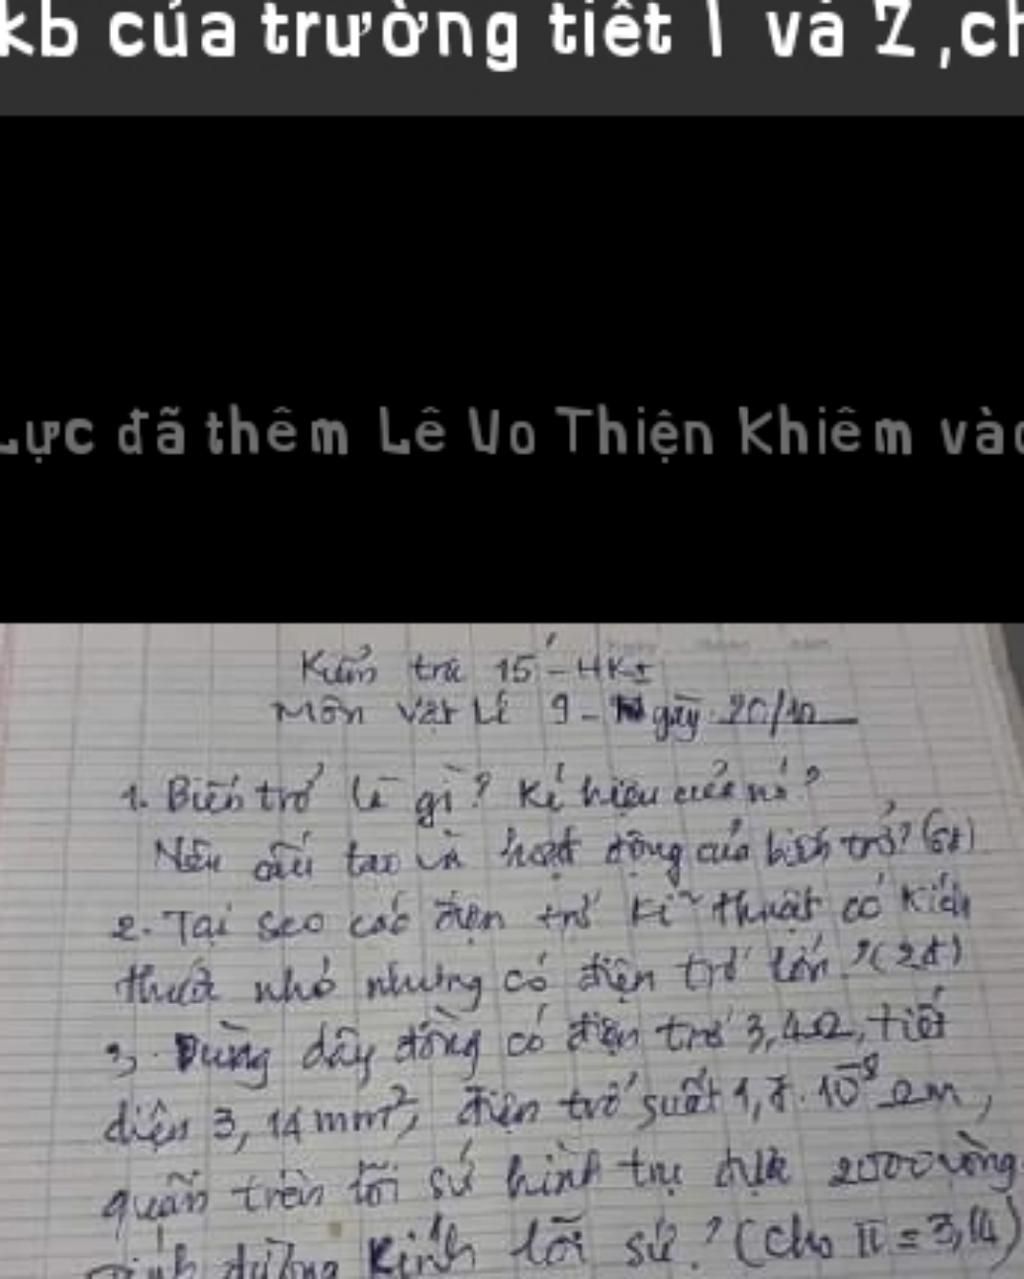 kb của trường tiết 1 và 2 ,ch
Lực đã thêm Lê Vo Thiện Khiêm và
Kiểm tra 15' - HKI
Môn Vật Lí 9 - Ngày 20/10
1. Biến trở là gì? Kí hiệu của nó?
Nêu cấu tạo và hoạt động của biến trở? (6đ)
2. Tại sao các điện trở kĩ thuật có kích
thước nhỏ nhưng có điện trở lớn? (2đ)
3. Dùng dây đồng có điện trở 3,4Ω, tiết
diện 3,14 mm², điện trở suất 1,7.10⁻⁸ Ωm,
quấn trên lõi sứ hình trụ được vòng
Tính đường kính lõi sứ? (Cho π = 3,14)